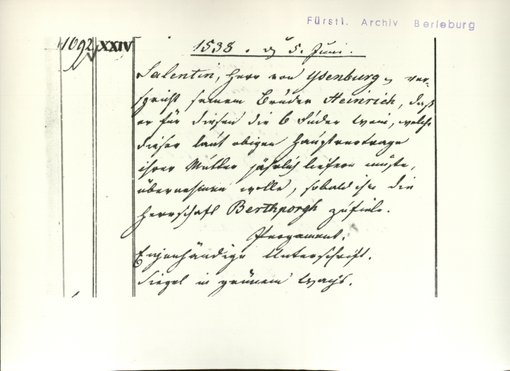 Fürstl. Archiv Berleburg
1092 XXIV
1538. d 5. Juni.
Salentin, Herr von Ysenburg, ver-
spricht seinem Bruder Heinrich, daß
er für diesen die 6 Fuder Wein, welche
dieser laut obigen Hauptvertrage
ihrer Mutter jährlich liefern mußte,
übernehmen wolle, sobald ihm die
Herrschaft Berthporgh zufiele.
Pergament.
Eigenhändige Unterschrift.
Siegel in grünem Wachs.